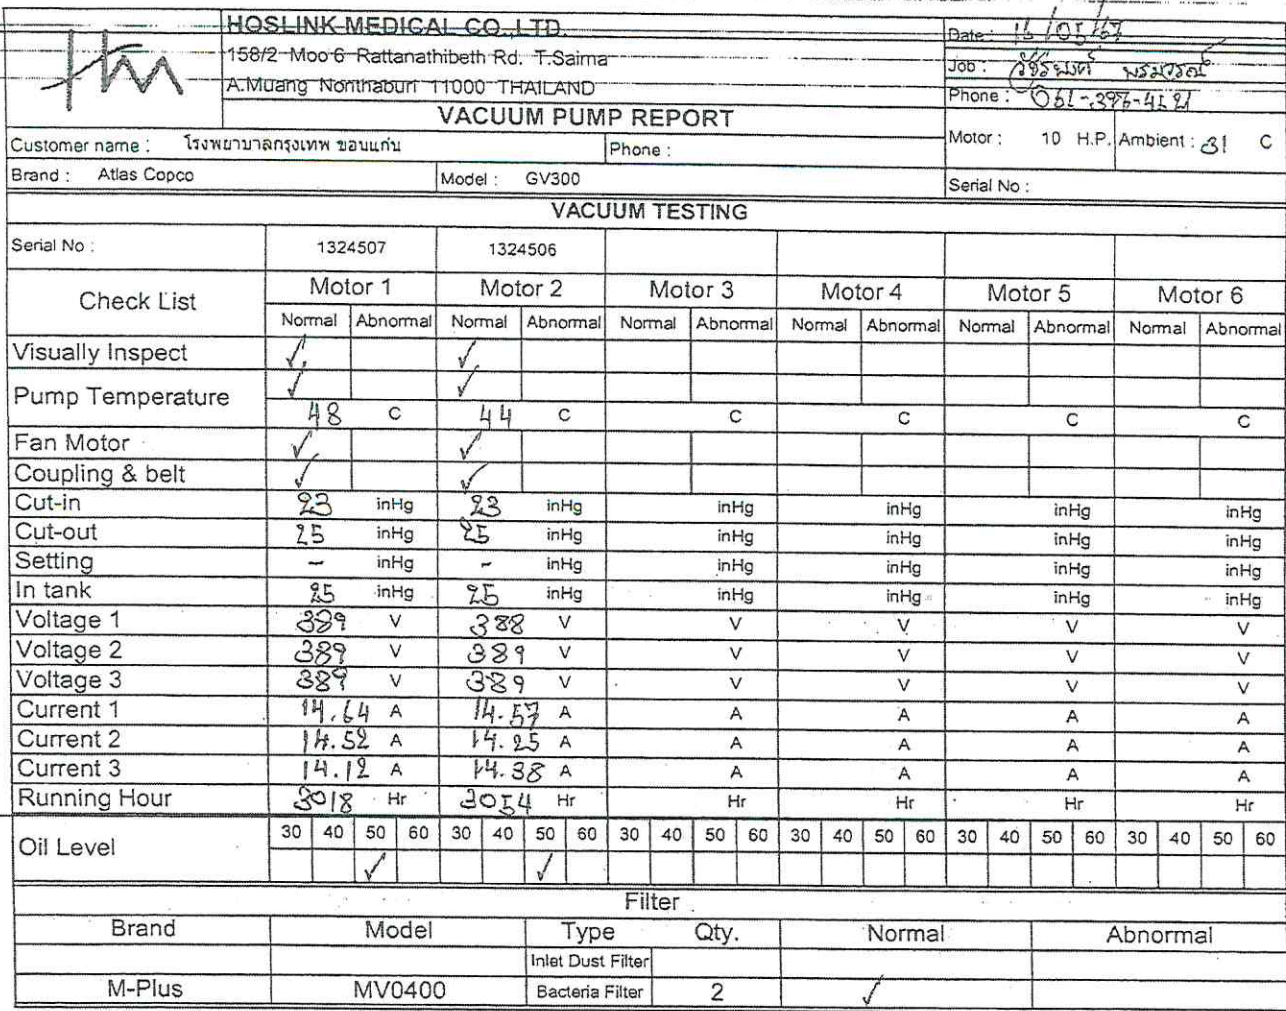 HOSLINK MEDICAL CO.,LTD.
158/2 Moo 6 Rattanathibeth Rd. T.Saima
A.Muang Nonthaburi 11000 THAILAND
Date: /05/67
Job :
Phone :
VACUUM PUMP REPORT
Customer name : โรงพยาบาลกรุงเทพ ขอนแก่น Phone : Motor : 10 H.P. Ambient : 31 C
Brand : Atlas Copco Model : GV300 Serial No :
VACUUM TESTING
Serial No : 1324507 1324506
Check List Motor 1 Motor 2 Motor 3 Motor 4 Motor 5 Motor 6
Normal Abnormal Normal Abnormal Normal Abnormal Normal Abnormal Normal Abnormal Normal Abnormal
Visually Inspect ✓ ✓
Pump Temperature ✓ ✓
48 C 44 C C C C C
Fan Motor ✓ ✓
Coupling & belt ✓ ✓
Cut-in 23 inHg 23 inHg inHg inHg inHg inHg
Cut-out 25 inHg 25 inHg inHg inHg inHg inHg
Setting - inHg - inHg inHg inHg inHg inHg
In tank 25 inHg 25 inHg inHg inHg inHg inHg
Voltage 1 389 V 388 V V V V V
Voltage 2 389 V 389 V V V V V
Voltage 3 389 V 389 V V V V V
Current 1 14.64 A 14.57 A A A A A
Current 2 14.52 A 14.25 A A A A A
Current 3 14.12 A 14.38 A A A A A
Running Hour 3018 Hr 3054 Hr Hr Hr Hr Hr
Oil Level 30 40 50 60 30 40 50 60 30 40 50 60 30 40 50 60 30 40 50 60 30 40 50 60
✓ ✓
Filter
Brand Model Type Qty. Normal Abnormal
Inlet Dust Filter
M-Plus MV0400 Bacteria Filter 2 ✓